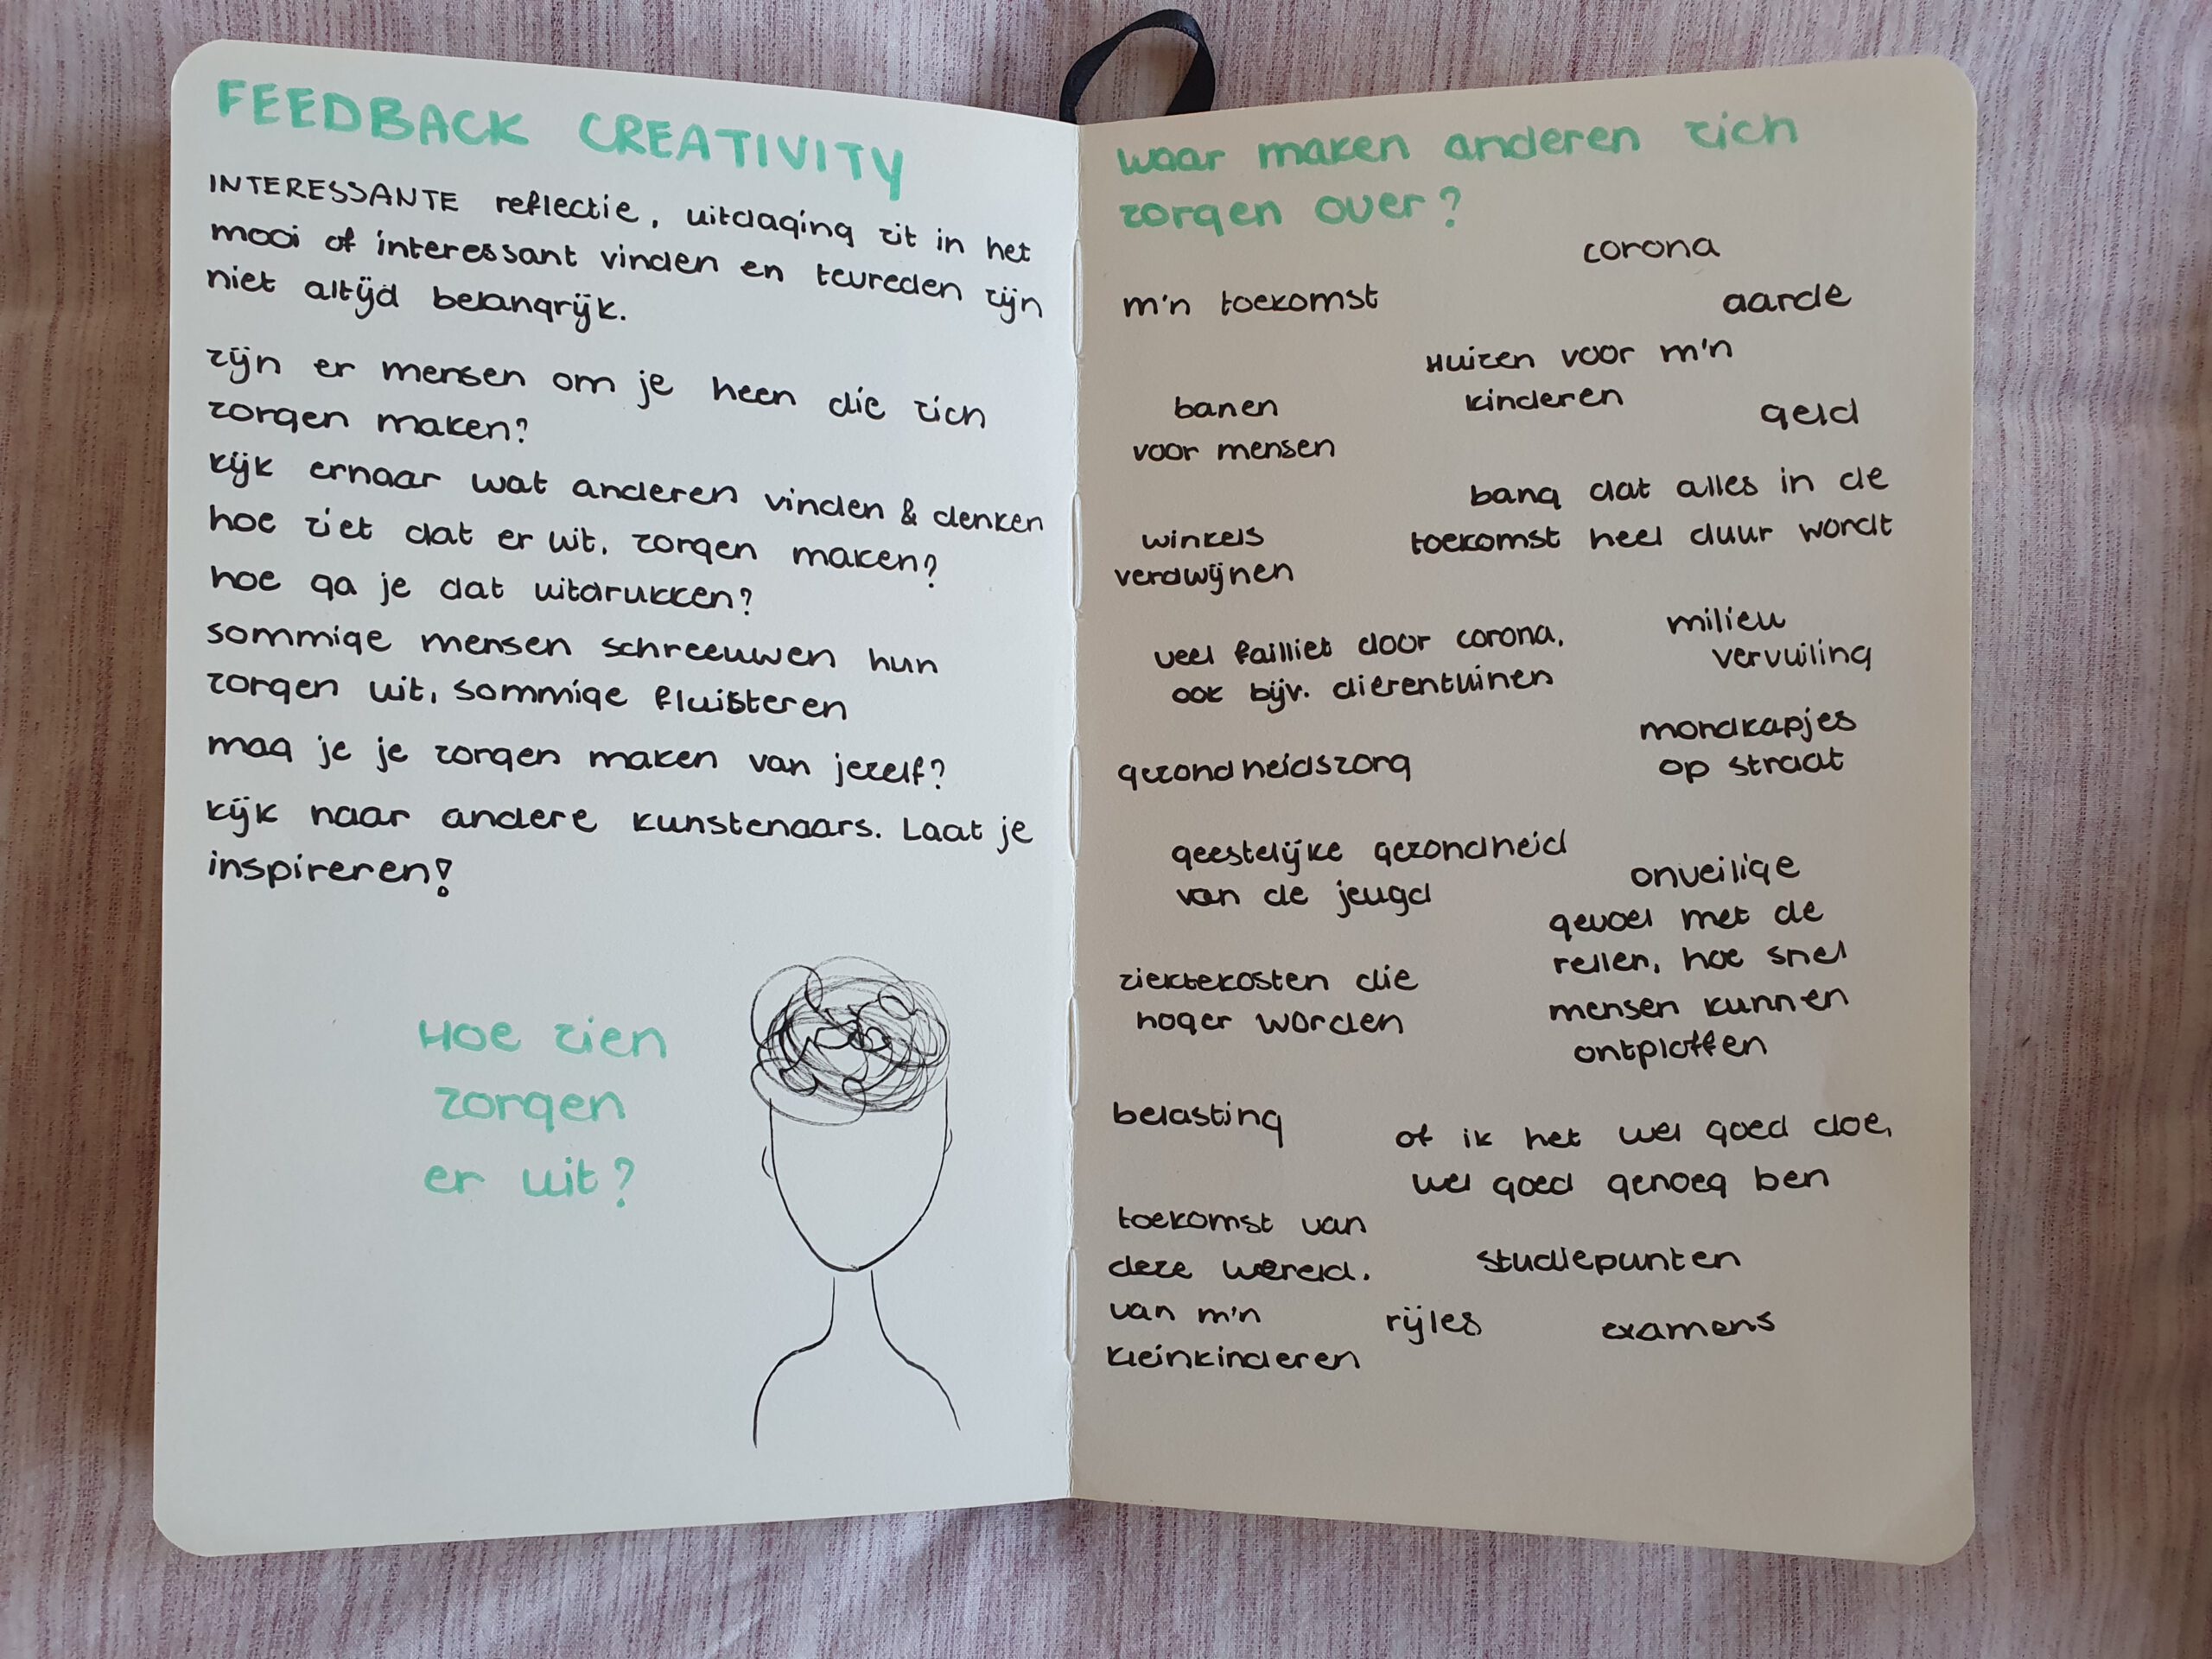 FEEDBACK CREATIVITY
INTERESSANTE reflectie, uitdaging zit in het
mooi of interessant vinden en tevreden zijn
niet altijd belangrijk.
zijn er mensen om je heen die zich
zorgen maken?
kijk ernaar wat anderen vinden & denken
hoe ziet dat er uit, zorgen maken?
hoe ga je dat uitdrukken?
sommige mensen schreeuwen hun
zorgen uit, sommige fluisteren
mag je je zorgen maken van jezelf?
kijk naar andere kunstenaars. Laat je
inspireren!
Hoe zien
zorgen
er uit?
waar maken anderen zich
zorgen over?
corona
m'n toekomst
aarde
Huizen voor m'n
kinderen
banen
voor mensen
geld
bang dat alles in de
toekomst heel duur wordt
winkels
verdwijnen
veel failliet door corona,
ook bijv. dierentuinen
milieu
vervuiling
mondkapjes
op straat
gezondheidszorg
geestelijke gezondheid
van de jeugd
onveilige
gevoel met de
rellen, hoe snel
mensen kunnen
ontploffen
ziektekosten die
hoger worden
belasting
of ik het wel goed doe,
wel goed genoeg ben
toekomst van
deze wereld.
van m'n
kleinkinderen
studiepunten
rijles
examens